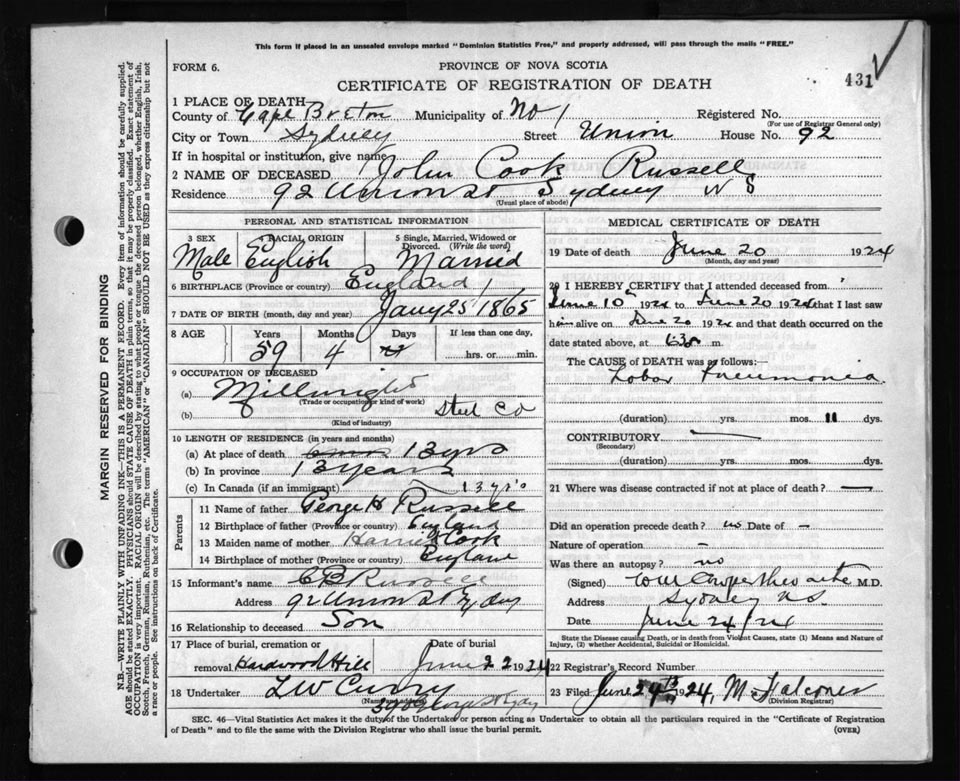 This form if placed in an unsealed envelope marked "Dominion Statistics Free," and properly addressed, will pass through the mails "FREE."
FORM 6.
PROVINCE OF NOVA SCOTIA
CERTIFICATE OF REGISTRATION OF DEATH
431
1 PLACE OF DEATH
County of Cape Breton Municipality of No 1 Registered No.
(For use of Registrar General only)
City or Town Sydney Street Union House No. 92
If in hospital or institution, give name
2 NAME OF DECEASED John Cook Russell
Residence 92 Union St Sydney N S
(Usual place of abode)
PERSONAL AND STATISTICAL INFORMATION
3 SEX 4 RACIAL ORIGIN 5 Single, Married, Widowed or Divorced. (Write the word)
Male English Married
6 BIRTHPLACE (Province or country) England
7 DATE OF BIRTH (month, day and year) Jany 25 1865
8 AGE Years Months Days If less than one day,
59 4 hrs. or min.
9 OCCUPATION OF DECEASED
(a) Millwright
(Trade or occupation or kind of work)
(b) Steel Co
(Kind of industry)
10 LENGTH OF RESIDENCE (in years and months)
(a) At place of death 13 yrs
(b) In province 13 years
(c) In Canada (if an immigrant) 13 yrs
Parents
11 Name of father George H Russell
12 Birthplace of father (Province or country) England
13 Maiden name of mother Harriet Cook
14 Birthplace of mother (Province or country) England
15 Informant's name C B Russell
Address 92 Union St Sydney
16 Relationship to deceased Son
17 Place of burial, cremation or removal Hardwood Hill Date of burial June 22 1924
18 Undertaker L W Curry
MEDICAL CERTIFICATE OF DEATH
19 Date of death June 20 1924
(Month, day and year)
20 I HEREBY CERTIFY that I attended deceased from
June 10 1924 to June 20 1924 that I last saw
him alive on June 20 1924 and that death occurred on the
date stated above, at m.
The CAUSE of DEATH was as follows:—
Lobar Pneumonia
(duration) yrs. mos. 11 dys.
CONTRIBUTORY
(Secondary)
(duration) yrs. mos. dys.
21 Where was disease contracted if not at place of death? —
Did an operation precede death? no Date of —
Nature of operation —
Was there an autopsy? no
(Signed) M.D.
Address Sydney N.S.
Date June 24/24
State the Disease causing Death, or in death from Violent Causes, state (1) Means and Nature of Injury, (2) whether Accidental, Suicidal or Homicidal.
22 Registrar's Record Number
23 Filed June 24th 1924, M. Falconer
(Division Registrar)
SEC. 46—Vital Statistics Act makes it the duty of the Undertaker or person acting as Undertaker to obtain all the particulars required in the "Certificate of Registration
of Death" and to file the same with the Division Registrar who shall issue the burial permit. (OVER)
MARGIN RESERVED FOR BINDING
N.B.—WRITE PLAINLY WITH UNFADING INK—THIS IS A PERMANENT RECORD. Every item of information should be carefully supplied.
AGE should be stated EXACTLY. PHYSICIANS should STATE CAUSE OF DEATH in plain terms, so that it may be properly classified. Exact statement of
OCCUPATION is very important. RACIAL ORIGIN will be described by stating to what people or tongue the deceased person belonged, whether English, Irish,
Scotch, French, German, Russian, Ruthenian, etc. The terms "AMERICAN" or "CANADIAN" SHOULD NOT BE USED as they express citizenship but not
a race or people. See instructions on back of Certificate.